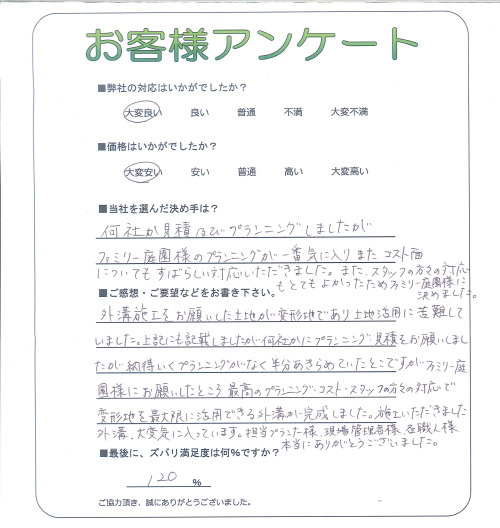 お客様アンケート
■弊社の対応はいかがでしたか？
大変良い 良い 普通 不満 大変不満
■価格はいかがでしたか？
大変安い 安い 普通 高い 大変高い
■当社を選んだ決め手は？
何社か見積及びプランニングしましたが
ファミリー庭園様のプランニングが一番気に入りまたコスト面
についてもすばらしい対応いただきました。また、スタッフの方々の対応
もとてもよかったためファミリー庭園様に
決めました。
■ご感想・ご要望などをお書き下さい。
外溝施工をお願いした土地が変形地であり土地活用に苦難して
いました。上記にも記載しましたが何社かにプランニング見積をお願いしまし
たが納得いくプランニングがなく半分あきらめていたとこですがファミリー庭
園様にお願いしたところ最高のプランニング・コスト・スタッフの方々の対応で
変形地を最大限に活用できる外溝が完成しました。施工いただきました
外溝、大変気に入っています。担当プランナー様、現場管理者様、各職人様
本当にありがとうございました。
■最後に、ズバリ満足度は何％ですか？
120 ％
ご協力頂き、誠にありがとうございました。